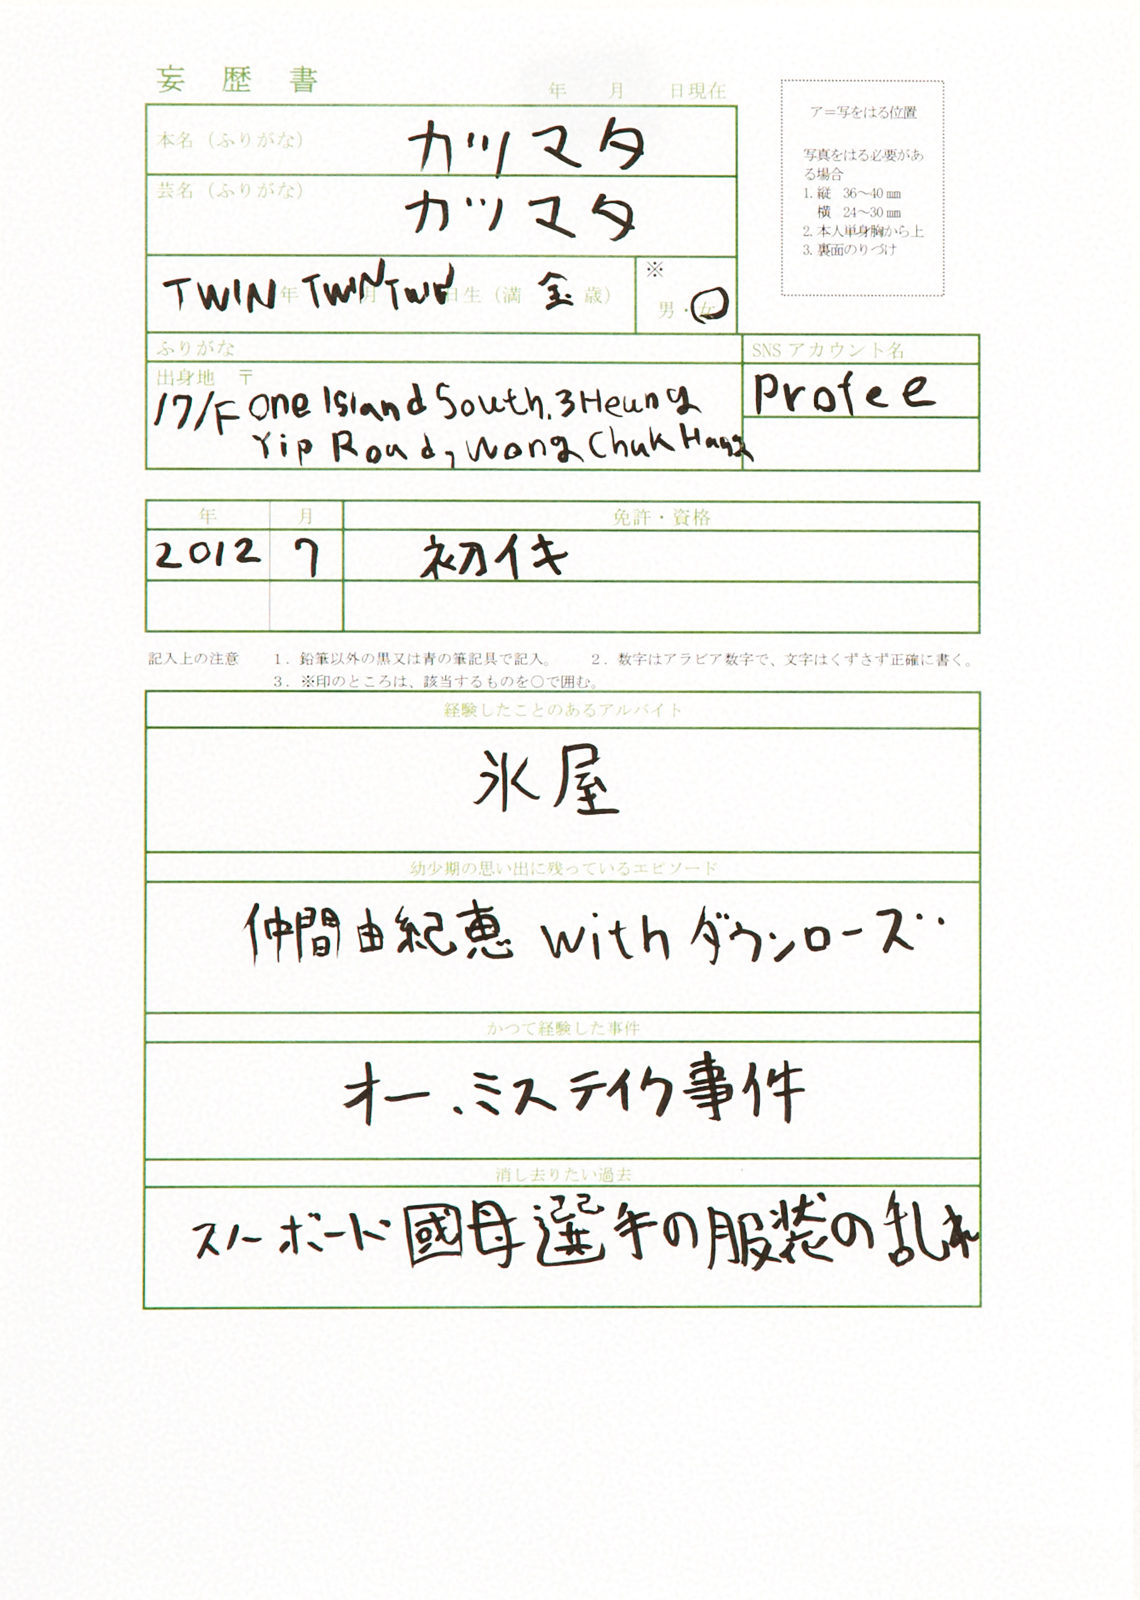 妄歴書
年 月 日現在
ア＝写をはる位置
写真をはる必要があ
る場合
1. 縦 36～40 mm
横 24～30 mm
2. 本人単身胸から上
3. 裏面のりづけ
本名（ふりがな） カツマタ
芸名（ふりがな） カツマタ
TWIN年 TWIN月 TWIN日生（満 金 歳）
※
男・女
ふりがな
SNS アカウント名
出身地 〒
17/F One Island South, 3 Heung
Yip Road, Wong Chuk Hang
Profee
年 月 免許・資格
2012 7 初イキ
記入上の注意 1．鉛筆以外の黒又は青の筆記具で記入。 2．数字はアラビア数字で、文字はくずさず正確に書く。
3．※印のところは、該当するものを○で囲む。
経験したことのあるアルバイト
氷屋
幼少期の思い出に残っているエピソード
仲間由紀恵 with ダウンローズ
かつて経験した事件
オー、ミステイク事件
消し去りたい過去
スノーボード國母選手の服装の乱れ